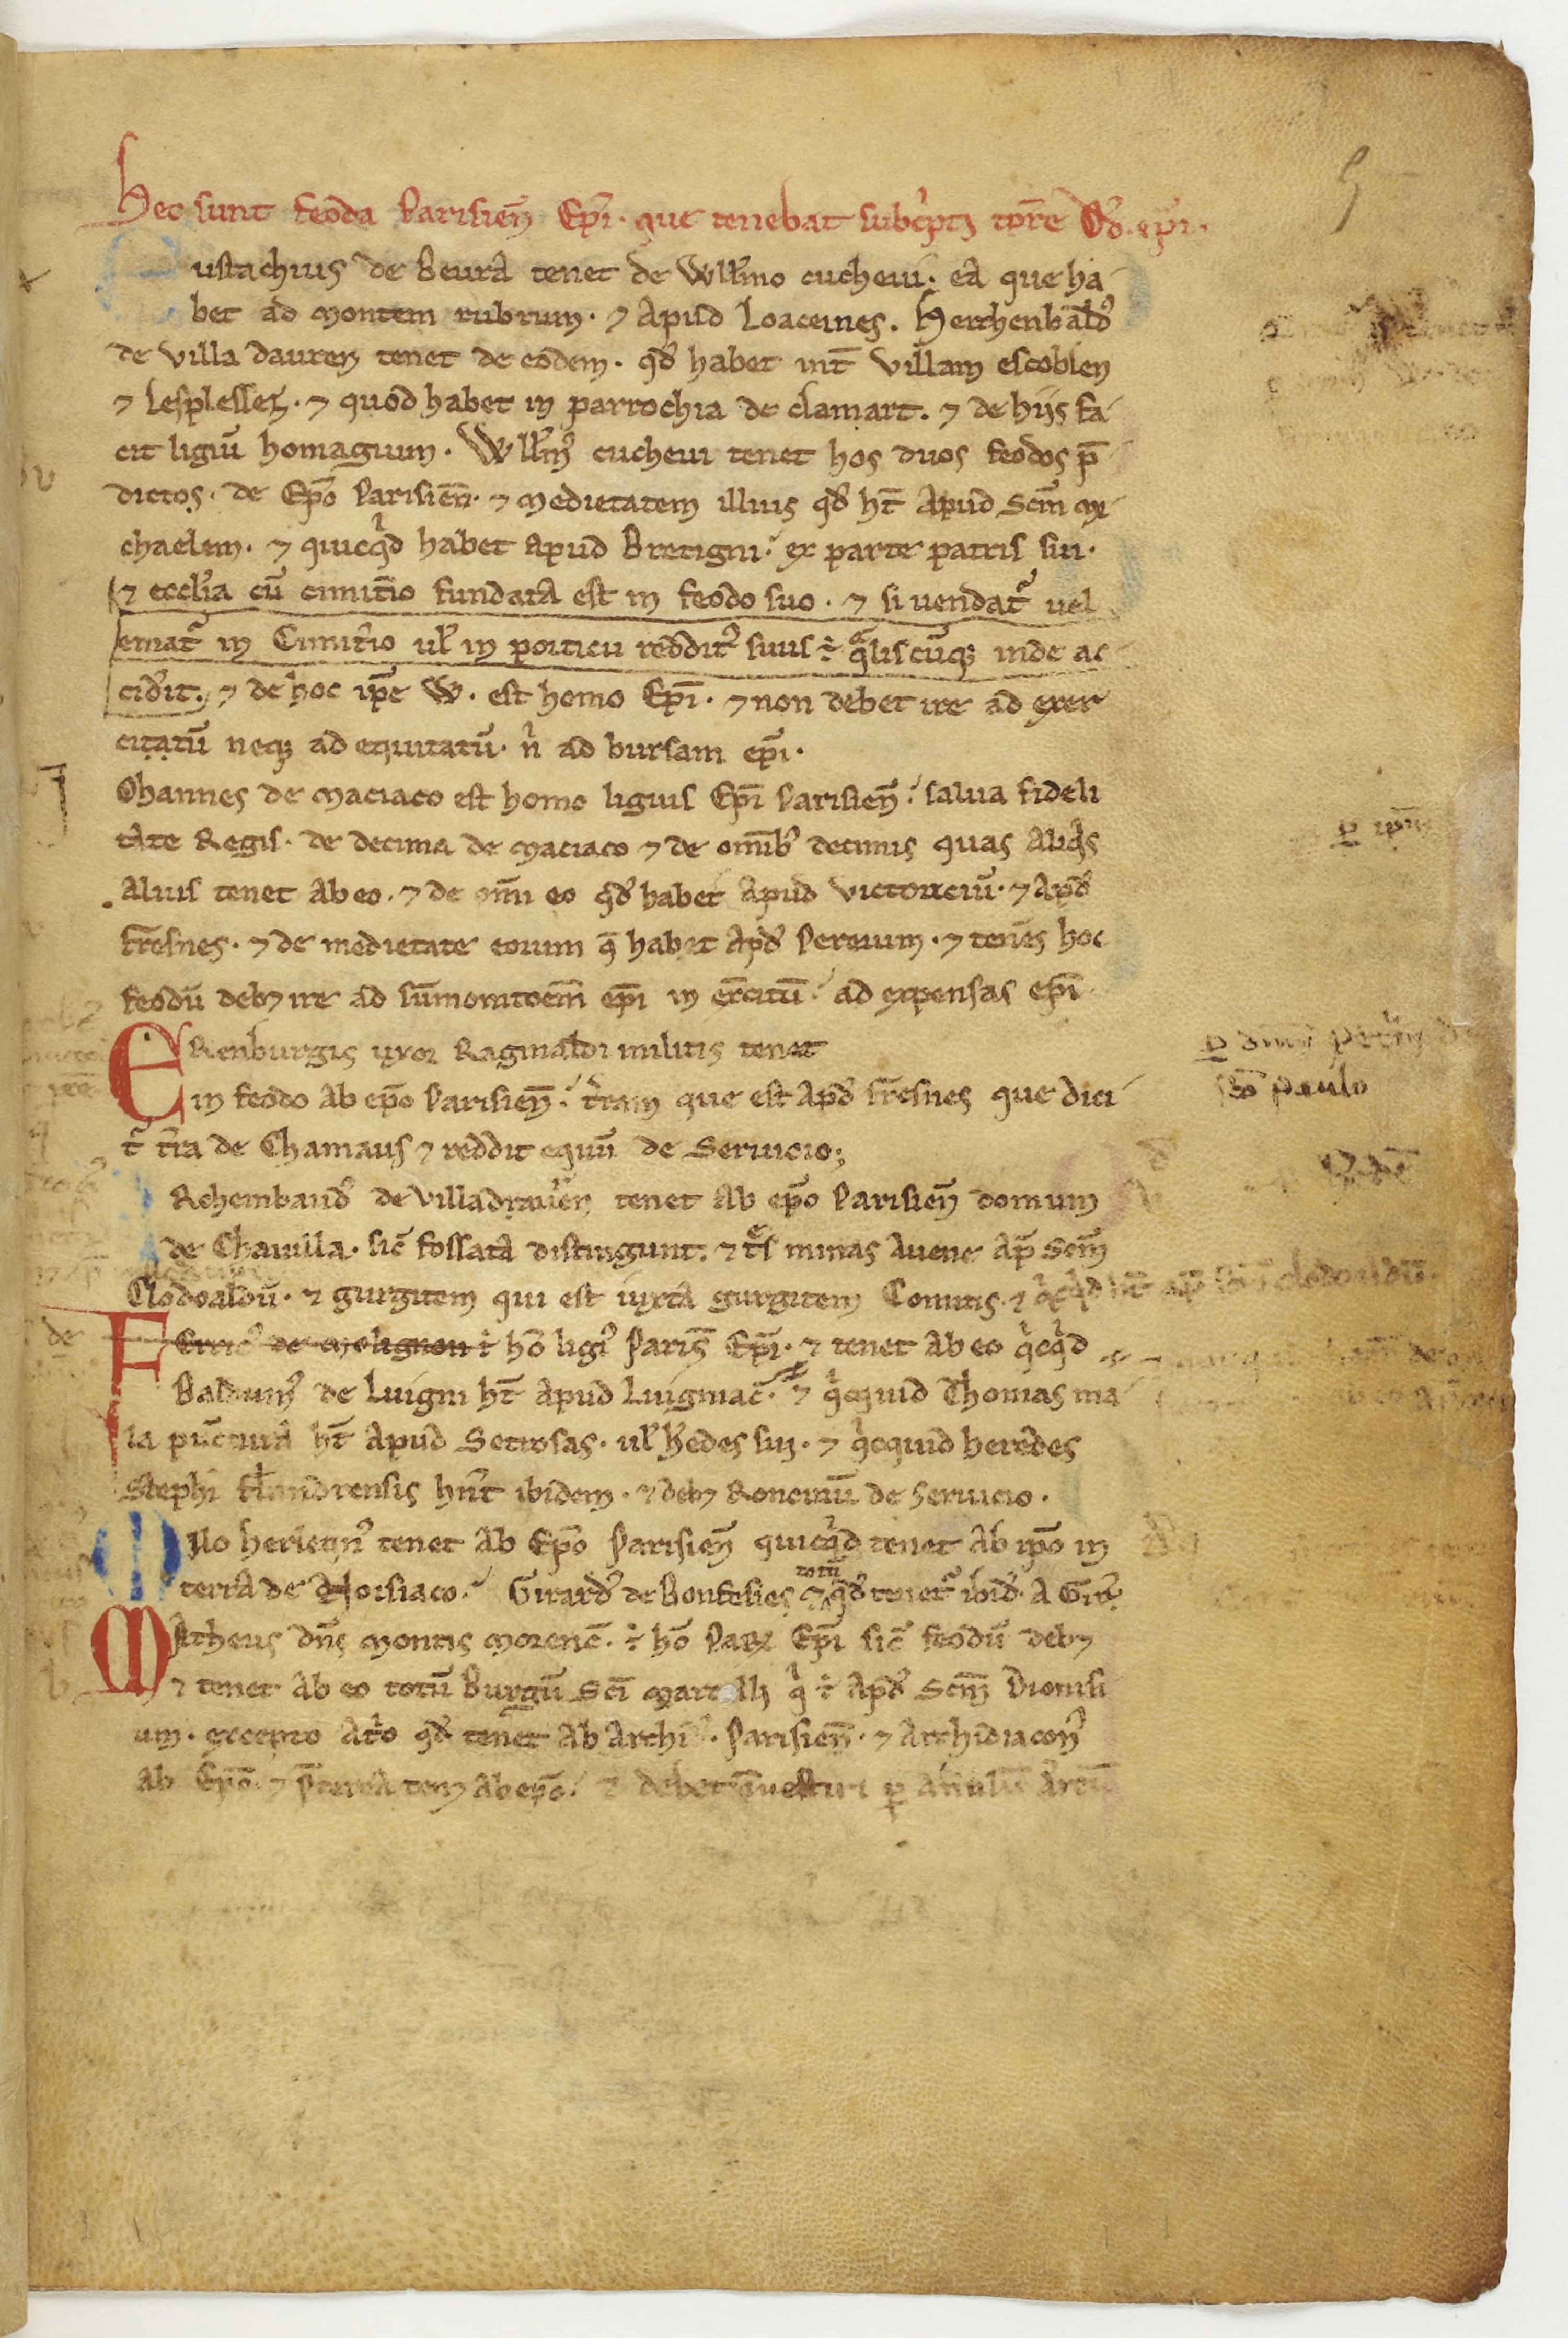 hec sunt feoda Parisien̄ Ep̄i· que tenebat subc̓ptꝫ tp̄re Od̓·ep̄i·
ustachius de Beura tenet de Wll̓mo cucheui· ea que ha
bet ad montem rubrum· ⁊ apud Loaceines. Herchenbald᾽
de villa dauren tenet de eodem· qd̓ habet int̄ villam escoblen
⁊ Lesplessez·⁊ quod habet in parrochia de clamart. ⁊ de hiis fa
cit ligiū homagium· Wll̓m᾽ cucheui tenet hos duos feodos p̄
dictos· de Ep̄o Parisien̄·⁊ medietatem illius qd̓ ht̄ apud Scm̄ mi
chaelem· ⁊ quicqͥd habet apud Bretigni· ex parte patris sui·
⁊ eccl̓ia cū cimit̓io fundata est in feodo suo· ⁊ si uendat᷑ uel
emat᷑ in Cimit̓io ul̓ in porticu reddit᾽ suus ÷ qͣliscūqꝫ inde ac
cid̓it. ⁊ de hoc ip̄e W· est homo Ep̄i·⁊ non debet ire ad exer
citatū neqꝫ ad equitatū· n̄ ad bursam ep̄i·
Ohannes de maciaco est homo ligius Ep̄i Parisien̄· salua fideli
tate Regis· de decima de maciaco ⁊ de om̄ib᾽ decimis quas aliqͥs
alius tenet ab eo·⁊ de om̄i eo qd̓ habet apud victorciū·⁊ apd̓
fr̄esnes·⁊ de medietate eorum q̄ habet apd̓ Perreium·⁊ tenēs hoc
feodū debꝫ ire ad sūmonitoem̄ ep̄i in ex̄citū· ad expensas ep̄i
ERenburgis uxor Raginaldi militis tenet
in feodo ab ep̄o Parisien̄· tr̓ram que est apd̓ fr̄esnes que dici
t᷑ tr̓ra de Chamaus ⁊ reddit equū de Seruicio;
Rchembaud᾽ de villadauren tenet ab ep̄o Parisien̄ domum
de Chauilla· sic̄ fossata distingunt· ⁊ tͤs minas auene ap̄ Scm̄
Clodoaldū· ⁊ gurgitem qui est iuxta gurgitem Comitis·
FErric᾽ de molignon ÷ hō ligi᾽ Paris̄ Ep̄i·⁊ tenet ab eo qͥcqͥd
Balduin᾽ de Luigni ht̄ apud Luigniac̄· ⁊ qͥcquid Thomas ma
la pūctura ht̄ apud Setrosas· ul̓ h̓edes sui·⁊ qͥcquid heredes
Steph̓i flandrensis hn̄t ibidem·⁊ debꝫ Roncinū de seruicio·
Milo herlequn᾽ tenet ab Ep̄o Parisien̄ quicqͥd tenet ab ip̄o in
totū
terra de Noisiaco· Girard᾽ de Bonfesies ⁊ qd̓ tenet᷑ ibid̓· a Gir̓
MAtheus dn̄s montis morenc̄· ÷ hō Par̄ Ep̄i sic̄ feodū debꝫ
⁊ tenet ab eo totū Burgū Sci̅ marcelli qͥ ÷ apd̓ Scm̄ Dionisi
um· excepto at̓o qd̓ tenet ab archid̓· Parisien̄·⁊ archidiacon᾽
ab Ep̄o·⁊ p̄terea tenꝫ ab ep̄o· ⁊ debet
ꝑ dn̄m petrū de
sc̄o paulo